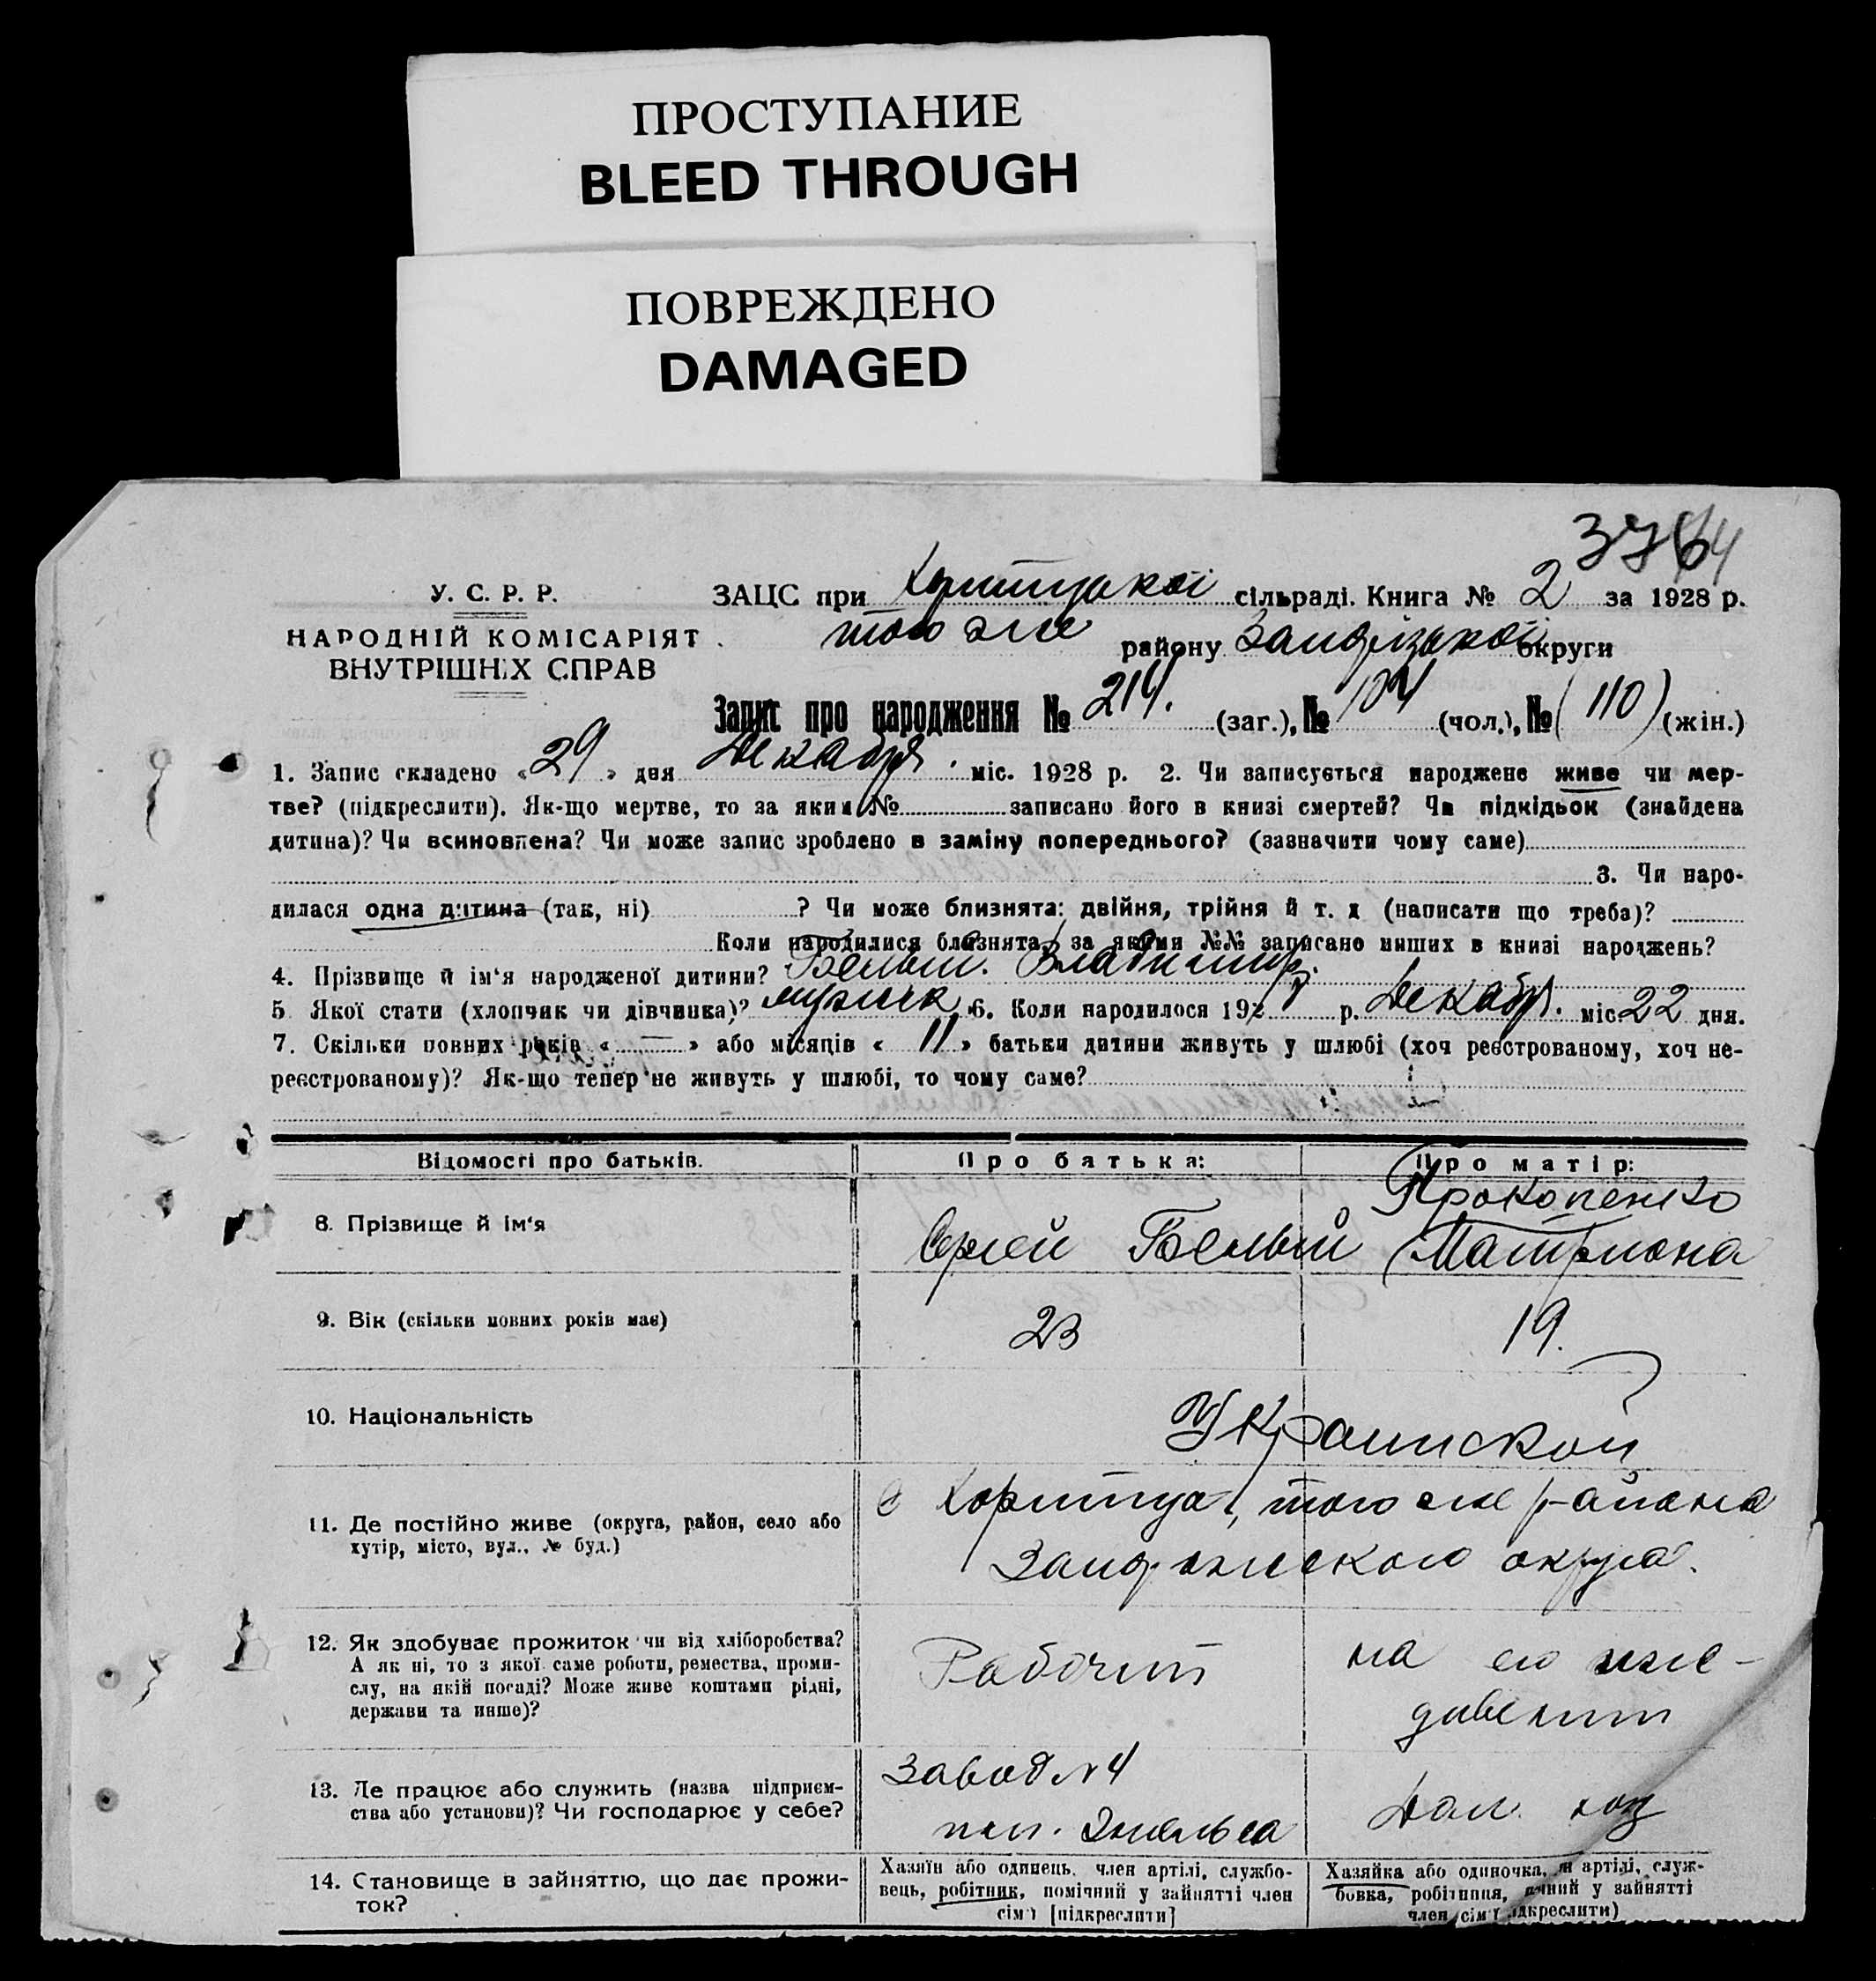 ПРОСТУПАНИЕ
BLEED THROUGH
ПОВРЕЖДЕНО
DAMAGED
У. С. Р. Р.
НАРОДНІЙ КОМІСАРІЯТ
ВНУТРІШНІХ СПРАВ
ЗАЦС при Хортицкої сільраді. Книга № 2 за 1928 р.
того же району Запорізької округи
Запис про народження № 214. (заг.), № 104 (чол.), № (110) (жін.)
1. Запис складено «29» дня Декабря міс. 1928 р. 2. Чи записується народжене живе чи мер-
тве? (підкреслити). Як-що мертве, то за яким № записано його в книзі смертей? Чи підкідьок (знайдена
дитина)? Чи всиновлена? Чи може запис зроблено в заміну попереднього? (зазначити чому саме)
3. Чи наро-
дилася одна дитина (так, ні) ? Чи може близнята: двійня, трійня й т. д (написати що треба)?
Коли народилися близнята, за якими №№ записано инших в книзі народжень?
4. Прізвище й ім‘я народженої дитини? Белый. Владимир.
5 Якої стати (хлопчик чи дівчинка)? мужск. 6. Коли народилося 1928 р. Декабр. міс. 22 дня.
7. Скільки повних років «—» або місяців «11» батьки дитини живуть у шлюбі (хоч реєстрованому, хоч не-
реєстрованому)? Як-що тепер не живуть у шлюбі, то чому саме?
Відомості про батьків.
Про батька:
Про матір:
8. Прізвище й ім‘я
Сергей Белый
Прокопенко
Матрiона
9. Вік (скільки повних років має)
23
19.
10. Національність
Украинской
11. Де постійно живе (округа, район, село або
хутір, місто, вул., № буд.)
с Хортица, того же района
Запорожского округа.
12. Як здобуває прожиток чи від хліборобства?
А як ні, то з якої саме роботи, ремества, проми-
слу, на якій посаді? Може живе коштами рідні,
держави та инше)?
Рабочий
на его иже-
дивении
13. Де працює або служить (назва підприєм-
ства або установи)? Чи господарює у себе?
Завод №4
им. Энгельса
Дом. хоз
14. Становище в зайняттю, що дає прожи-
ток?
Хазяїн або одинець, член артілі, службо-
вець, робітник, помічний у зайнятті член
сім'ї [підкреслити]
Хазяйка або одиночка, артілі, служ-
бовка, робітниця, у зайнятті
член сім'ї